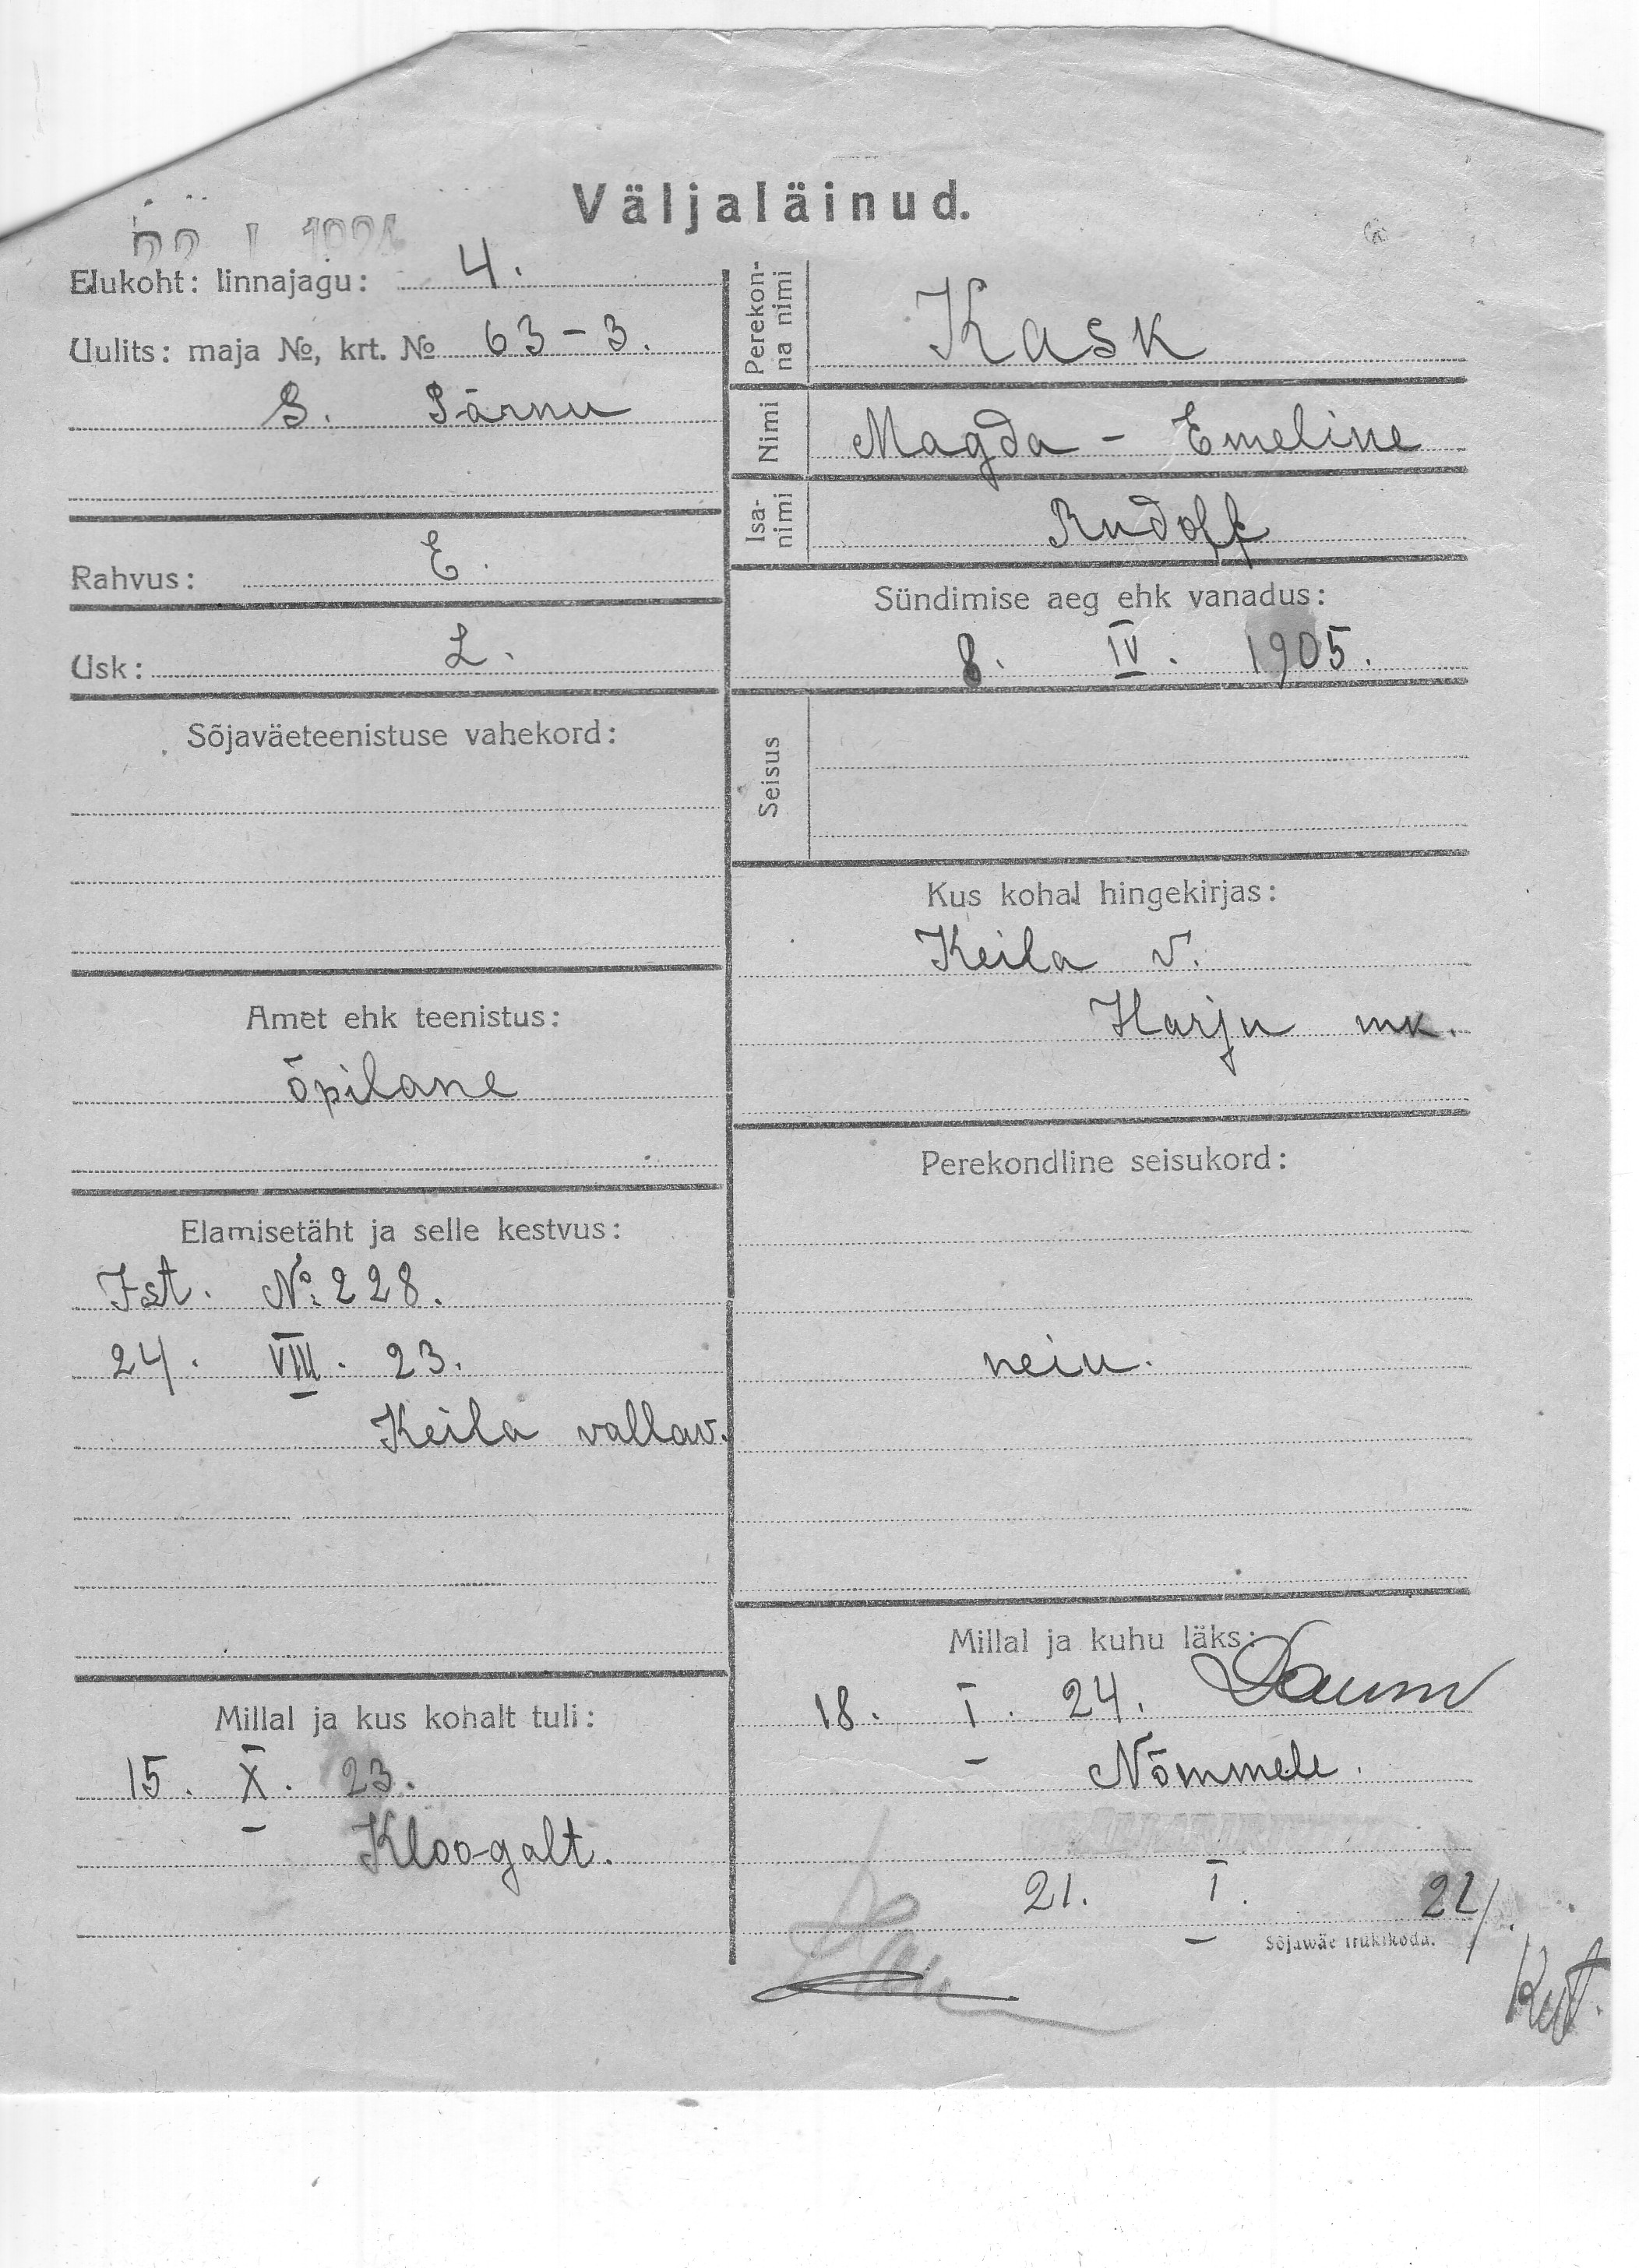 Väljaläinud.
22 I 1924
Elukoht: linnajagu: 4.
Uulits: maja №, krt. № 63-3.
S. Pärnu
Rahvus: E.
Usk: L.
Sõjaväeteenistuse vahekord:
Amet ehk teenistus:
õpilane
Elamisetäht ja selle kestvus:
Ist. №: 228.
24. VIII. 23.
Keila vallav.
Millal ja kus kohalt tuli:
15. X. 23.
Kloogalt.
Perekonna nimi Kask
Nimi Magda-Emeline
Isanimi Rudolf
Sündimise aeg ehk vanadus:
8. IV. 1905.
Seisus
Kus kohal hingekirjas:
Keila v.
Harju mk.
Perekondline seisukord:
neiu.
Millal ja kuhu läks:
18. I. 24.
Nõmmele.
21. I. 24.
Sõjawäe trükikoda.